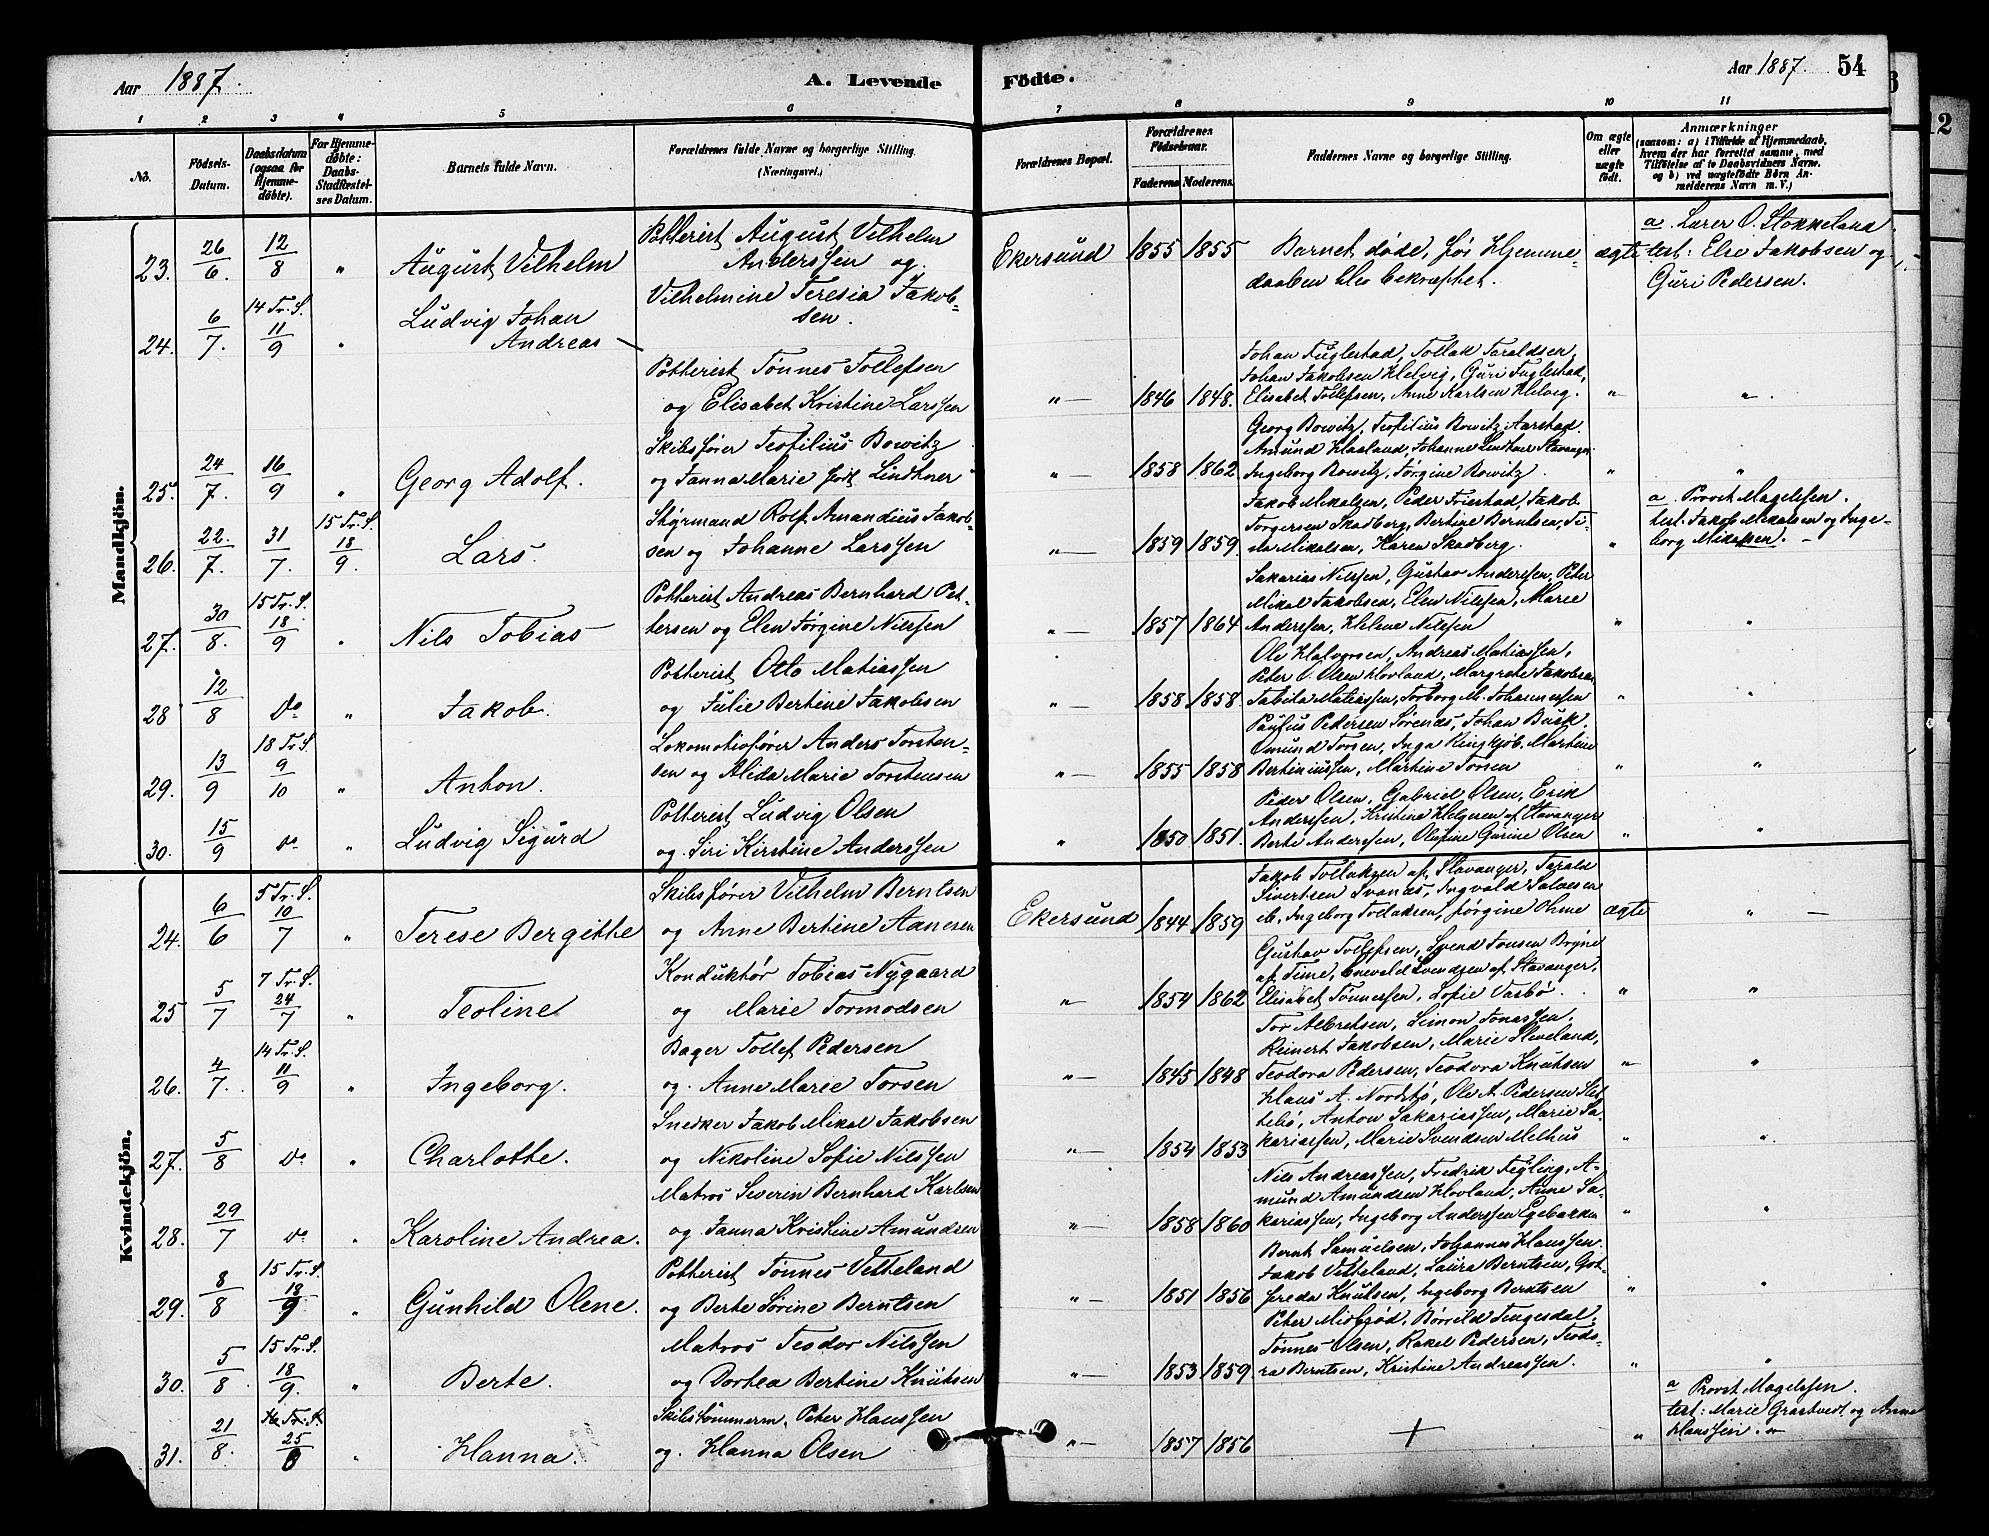 Aar 1887. A. Levende Födte. Aar 1887. 54
1 2 3 4 5 6 7 8 9 10 11
No. Födsels-Datum. Daabsdatum (ogsaa for Hjemmedöbte). For Hjemmedöbte: Daabs-Stadfæstelses Datum. Barnets fulde Navn. Forældrenes fulde Navne og borgerlige Stilling. (Næringsvei.) Forældrenes Bopæl. Forældrenes Födselsaar. Faderens. Moderens. Faddernes Navne og borgerlige Stilling. Om ægte eller uægte födt. Anmærkninger (saasom: a) i Tilfælde af Hjemmedaab, hvem der har forrettet samme, med Tilföielse af to Daabsvidners Navne. og b) ved uægtefödte Börn Anmelderens Navn m. V.)
Mandkjön.
23. 26/6. 12/8 " August Vilhelm
Potterist August Vilhelm
Anderssen og
Vilhelmine Teresia Jakob-
sen.
Ekersund 1855 1855
Barnet döde, för Hjemme-
daaben blev bekræftet.
ægte
a. Lærer O. Stokkeland
test: Else Jakobsen og
Guri Pedersen.
24. 6/7. 14 Tr. S. 11/9 " Ludvig Johan
Andreas
Potterist Tönnes Tollefsen
og Elisabet Kristine Larssen
"— 1846 1848.
Johan Fuglestad, Tollak Taraldsen,
Johan Jakobsen Helvig, Guri Fuglestad,
Elisabet Tollefsen, Anne Karlsen Helvig.
"— ".
25. 24/7. 16/9 " Georg Adolf.
Skibsförer Teofilius Bowitz
og Janna Marie föd Lindtner
"— 1858 1862
Georg Bowitz, Teofilius Bowitz Aarstad
Amund Haaland, Johanne Lindtner Stavanger
Ingeborg Bowitz, Jörgine Bowitz.
" "
26. 22./7. 31/7. 15 Tr. S. 18/9. Lars.
Styrmand Rolf Amandius Jakob-
sen og Johanne Larssen
"— 1859 1859
Jakob Mikalsen, Peder Friestad, Jakob
Torgersen Skadberg, Bertine Berntsen, Ti-
na Mikalsen, Karen Skadberg.
"
a. Provst Magelssen.
test. Jakob Mikalsen og Inge-
borg Mikalsen. —
27. 30/8. 15 Tr. S. 18/9 " Nils Tobias
Potterist Andreas Bernhard Pet-
tersen og Elen Jörgine Nilssen
"— 1857 1864
Sakarias Nilssen, Gustav Anderssen, Peter
Mikal Jakobsen, Elen Nilssen, Marie
Anderssen, Helene Nilssen
" "
28 12/8 do " Jakob.
Potterist Otto Matiassen
og Julie Bertine Jakobsen
"— 1858 1858
Ole Halvorsen, Andreas Matiassen,
Peter O. Olsen Hovland, Margrete Jakobsen
Tabita Matiassen, Torborg M. Johannessen
" "
29. 13/9 18 Tr. S. 9/10 " Anton.
Lokomotivförer Anders Torsten-
sen og Alida Marie Torstensen
"— 1855 1858
Paulus Pedersen Sörenas, Johan Busk.
Omund Torsen, Inga Ringkjöb. Martine
Bertiniussen, Martine Torsen
" "
30. 15/9 do " Ludvig Sigurd
Potterist Ludvig Olsen
og Siri Kirstine Anderssen
" 1850 1851.
Peder Olsen, Gabriel Olsen, Erik
Anderssen, Kristine Helgesen af Stavanger
Berte Anderssen, Olufine Gurine Olsen
" "
Kvindekjön.
24. 6/6 5 Tr. S. 10/7 " Terese Bergitte
Skibsförer Vilhelm Berntsen
og Anne Bertine Aanesen
Ekersund 1844 1859
Jakob Tollaksen af Stavanger, Tarald
Sivertsen Svanæs, Ingvald Salvesen
eb, Ingeborg Tollaksen, Jörgine Ohme
ægte " —
25 5/7 7 Tr. S. 24/7 " Teoline
Konduktör Tobias Nygaard
og Marie Tormodsen
"— 1854 1862
Gustav Tollefsen, Svend Jonsen Bryne
af Time, Enevald Svendsen af Stavanger,
Elisabet Tönnessen, Sofie Vasbö.
" "
26. 4/7. 14 Tr. S. 11/9 " Ingeborg.
Bager Tollef Pedersen
og Anne Marie Torsen
"— 1845 1848
Tor Albretsen, Simon Jonassen,
Reinert Jakobsen, Marie Sleveland,
Teodora Pedersen, Teodora Knutsen
"— "
27. 5/8 do " Charlotte.
Snedker Jakob Mikal Jakobsen
og Nikoline Sofie Nilssen
"— 1854 1853
Hans A. Nordsjö, Ole A. Pedersen Slet-
tebö, Anton Sakariassen, Marie Sa-
kariassen, Marie Svendsen Melhus
" "
28. 29/7 do " Karoline Andrea.
Matros Severin Bernhard Karlsen
og Janna Kristine Amundsen
"— 1858 1860
Nils Andreassen, Fredrik Feyling, A-
mund Amundsen Hovland, Anne Sa-
kariassen, Ingeborg Anderssen Egebakken
" "
29. 8/8 15 Tr. S. 18/9 " Gunhild Olene.
Potterist Tönnes Vetteland
og Berte Sörine Berntsen
"— 1851 1856
Bernt Samuelsen, Johannes Hanssen
Jakob Vetteland, Laura Berntsen, Got-
freda Knutsen, Ingeborg Berntsen
" "
30. 5/8 15 Tr. S. 18/9. " Berte.
Matros Teodor Nilssen
og Dortea Bertine Knutsen
"— 1853 1859
Peter Midbrød, Börrild Tengesdal,
Tönnes Olsen, Rakel Pedersen, Teodo-
ra Berntsen, Kristine Andreassen.
" "
31. 21/8. 25/8 " Hanna.
Skibstömmerm. Peter Hanssen
og Hanna Olsen
"— 1857 1856
+
"
a Provst Magelssen.
test: Marie Grastvedt og Anne
Hanssen.